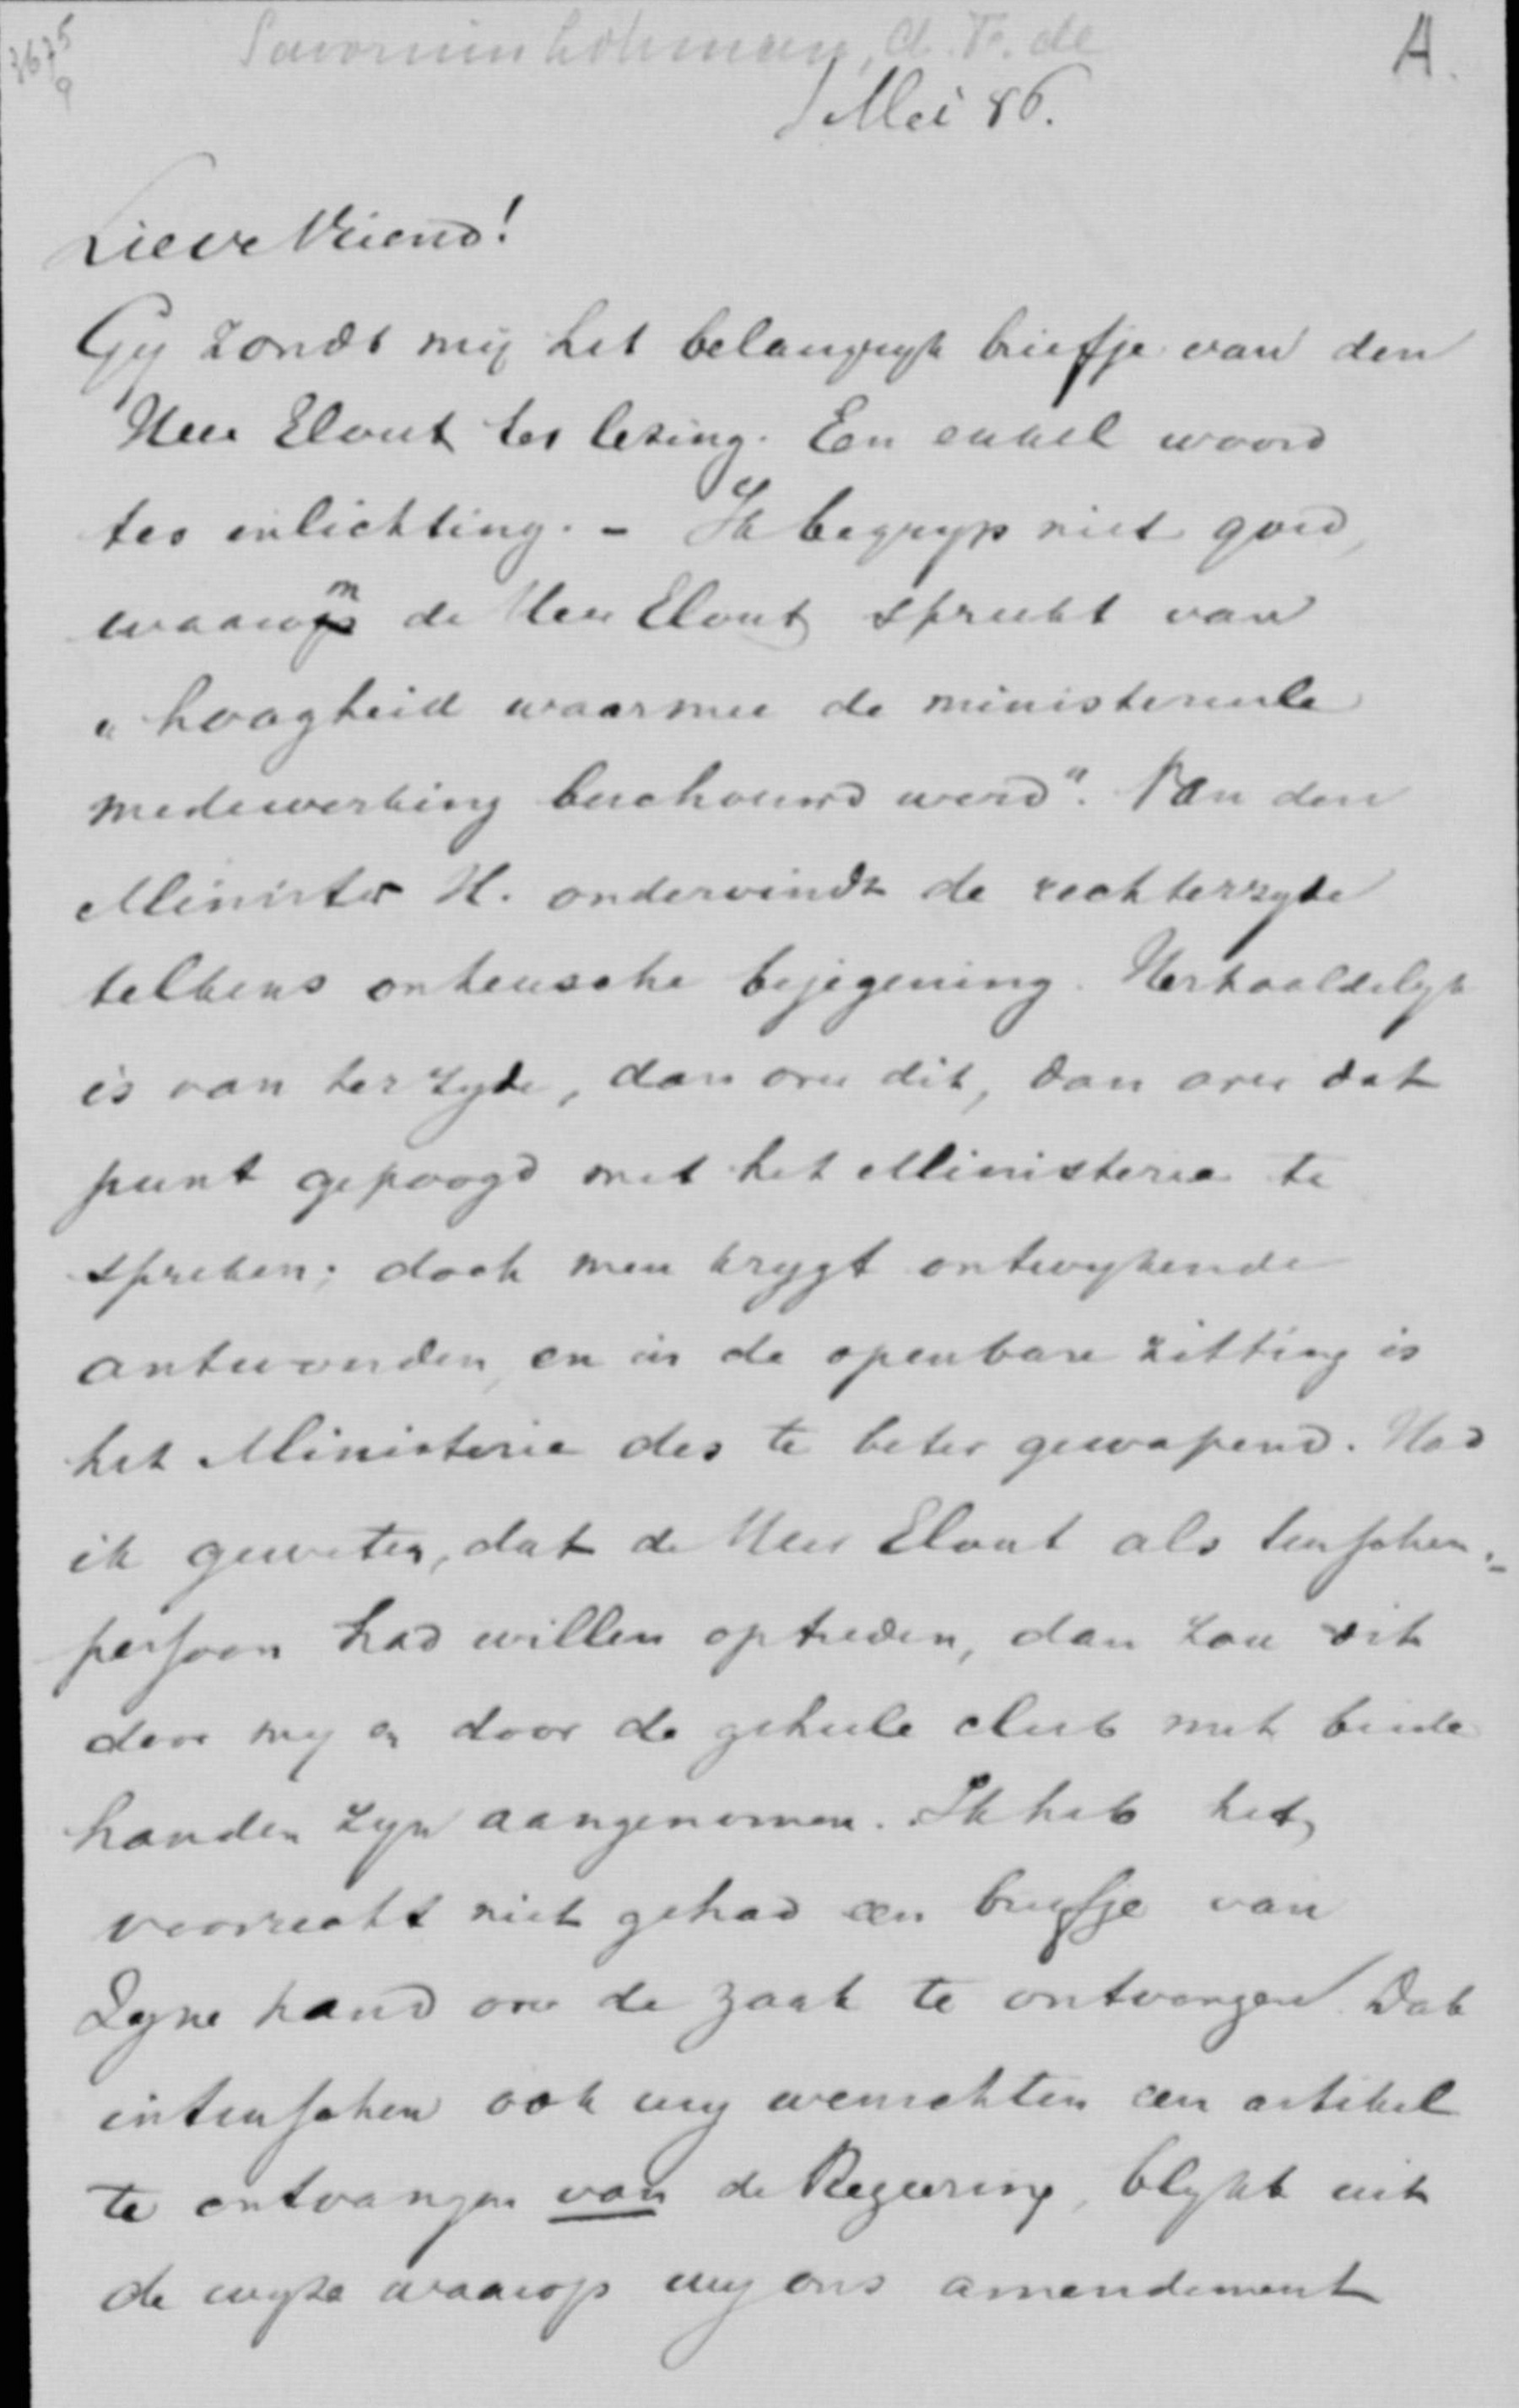 3675
9
Savornin Lohman, A. F. de
A.
1 Mei 86.
Lieve Vriend!
Gij zondt mij het belangryk briefje van den
Heer Elout ter lezing. Een enkel woord
ter inlichting. - Ik begryp niet goed,
waarom de Heer Elout spreekt van
„hoogheid waarmee de ministerieele
medewerking beschouwd werd". Van den
Minister H. ondervindt de rechterzyde
telkens onheusche bejegening. Herhaaldelyk
is van ter zyde, dan over dit, dan over dat
punt gepoogd met het Ministerie te
spreken; doch men krygt ontwykende
antwoorden, en in de openbare zitting is
het Ministerie des te beter gewapend. Had
ik geweten, dat de Heer Elout als tusschen-
persoon had willen optreden, dan zou dit
door my en door de geheele club met beide
handen zyn aangenomen. Ik heb het
voorrecht niet gehad een briefje van
Zyne hand over de zaak te ontvangen. Dat
intusschen ook wy wenschten een artikel
te ontvangen van de Regeering, blykt uit
de wyze waarop wy ons amendement